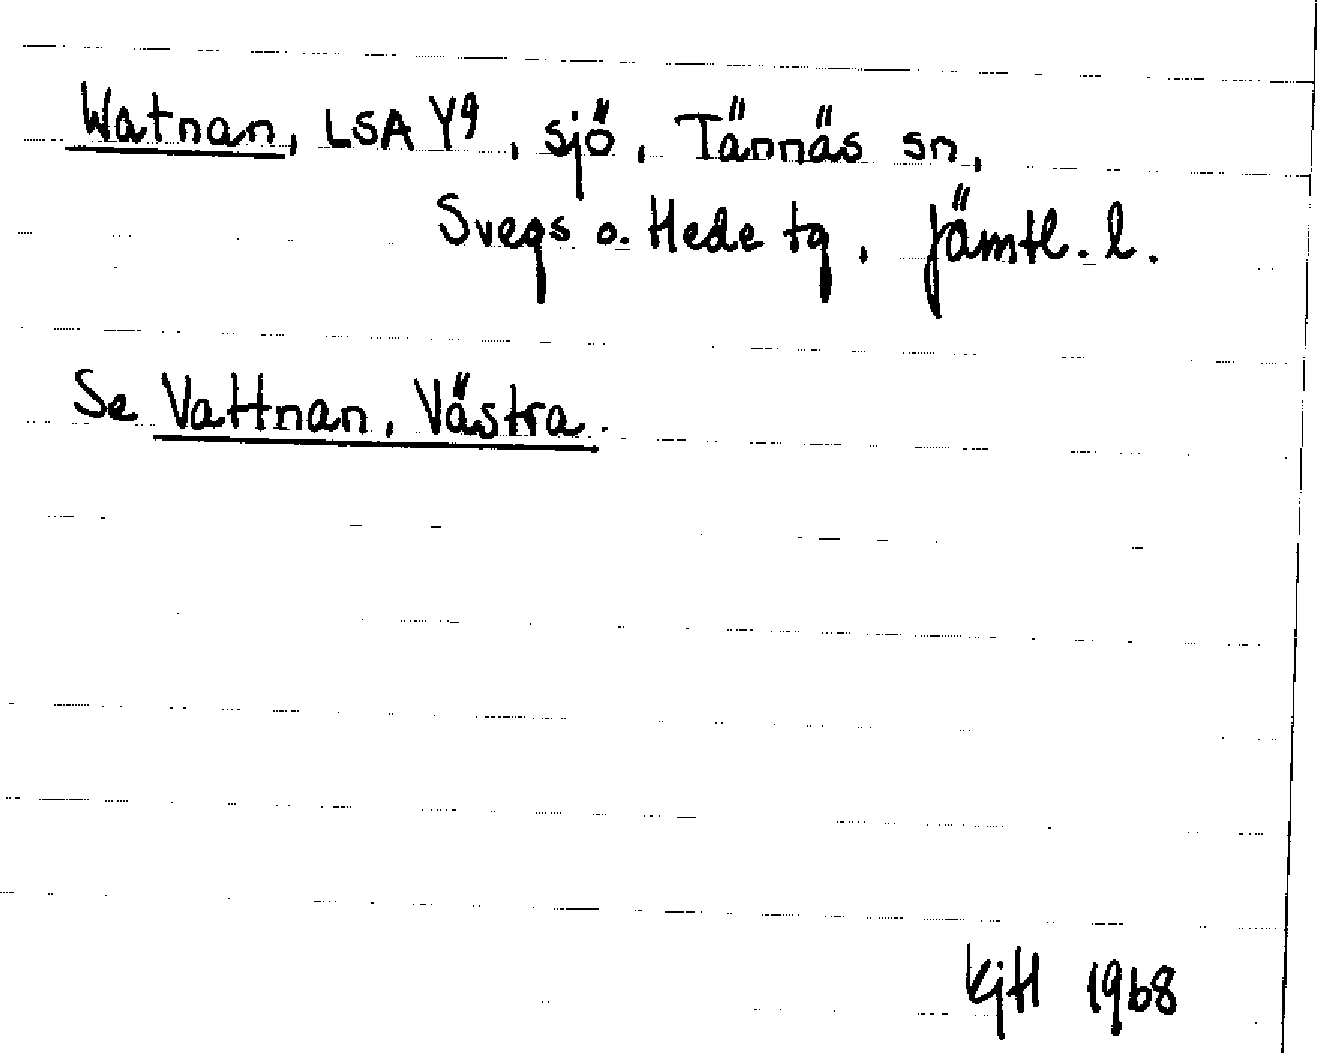 Watnan, LSA Y9, sjö, Tännäs sn,
Svegs o. Hede tg, Jämtl. l.
Se Vattnan, Västra.
KjH 1968